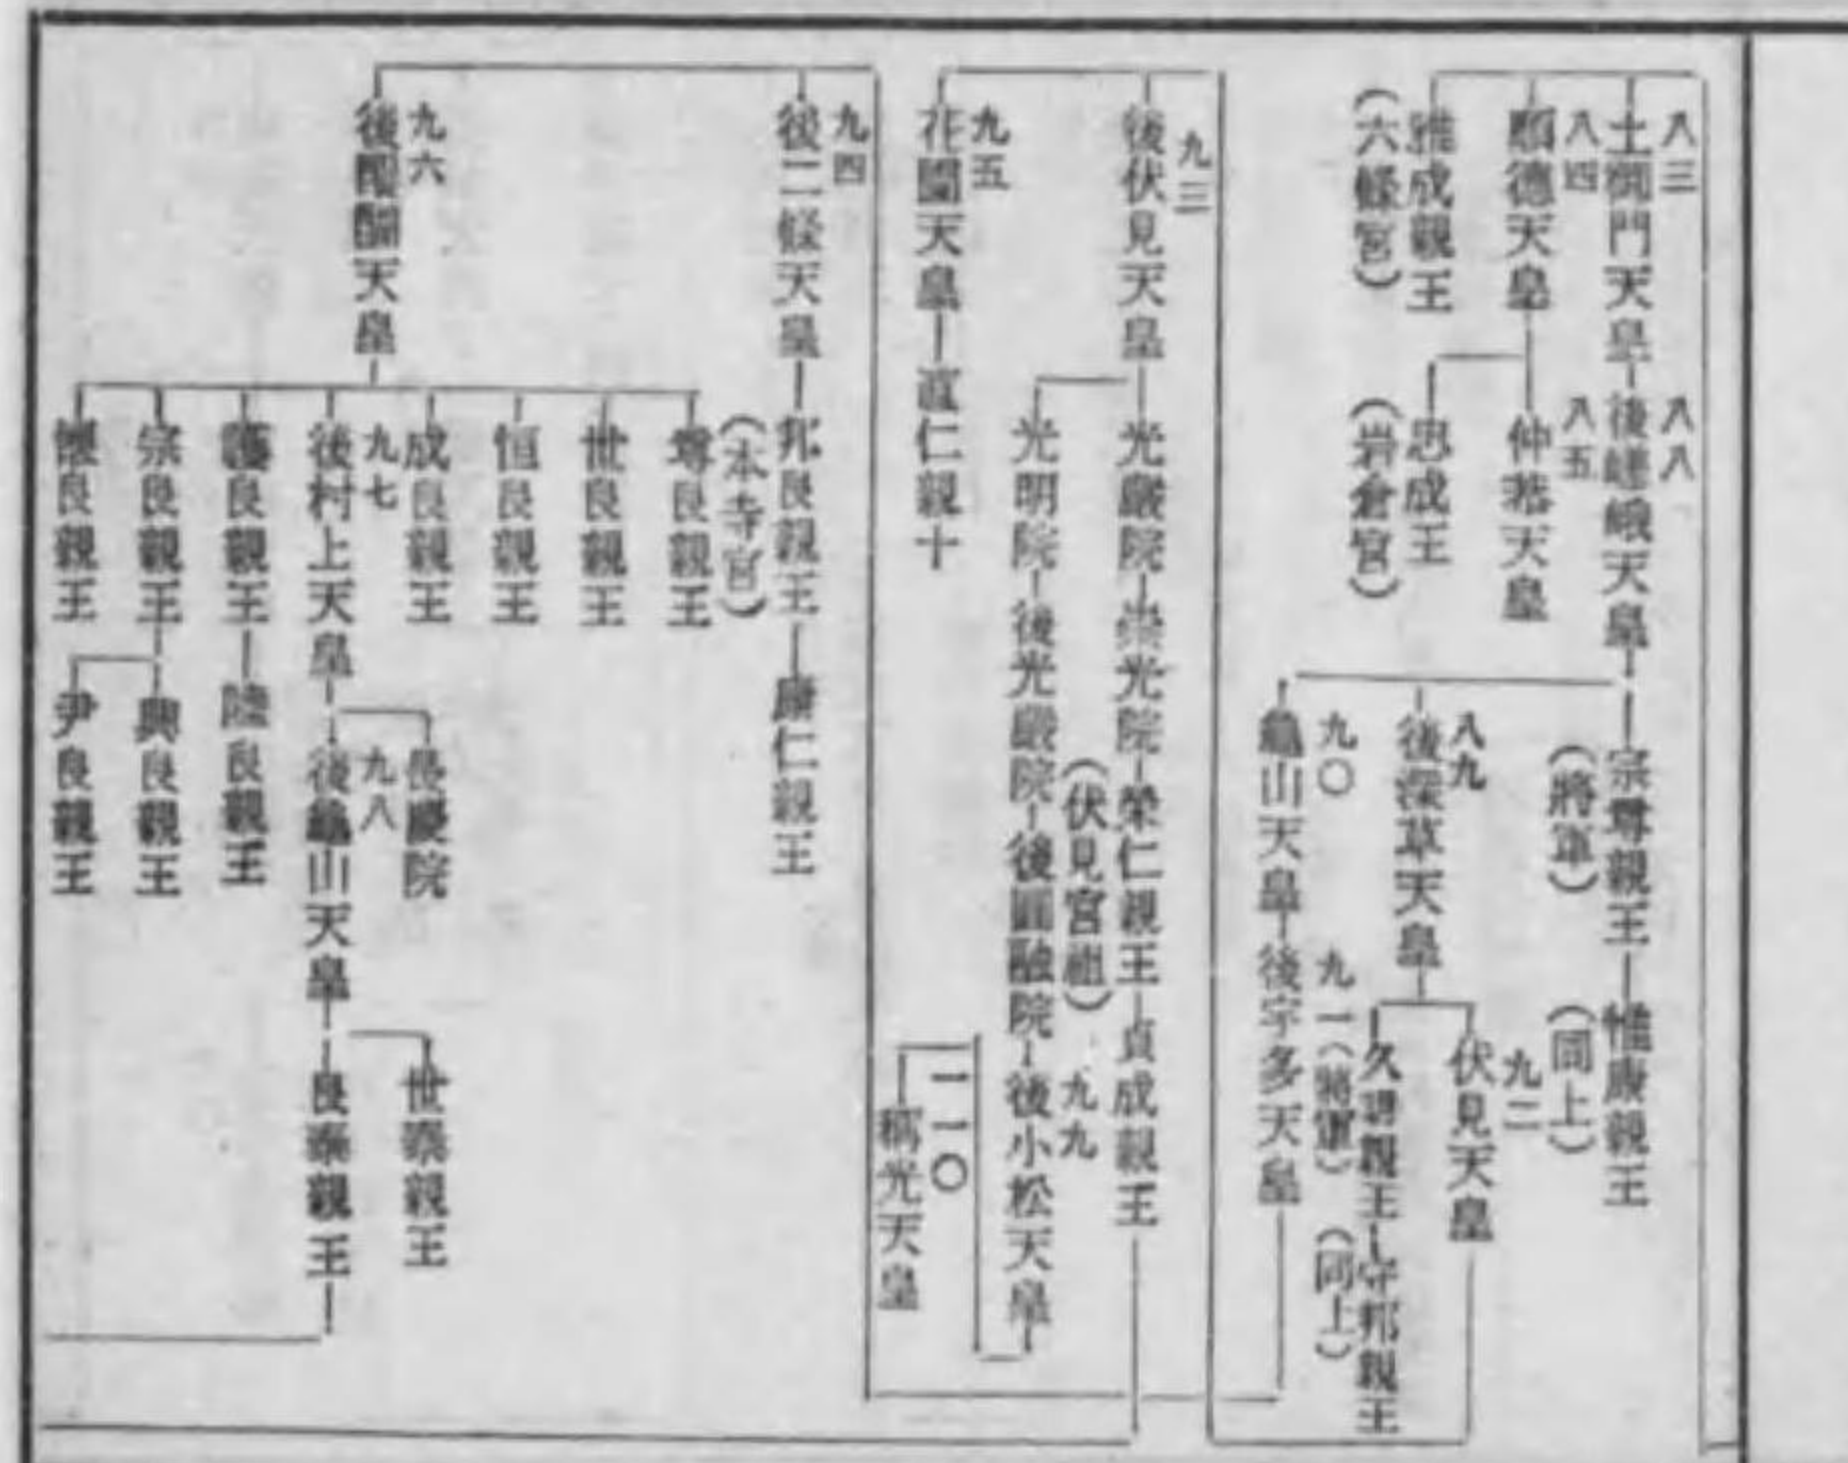 八三
土御門天皇
八八
後嵯峨天皇
宗尊親王
(將軍)
惟康親王
(同上)
八四
順德天皇
八五
仲恭天皇
忠成王
(岩倉宮)
雅成親王
(六條宮)
八九
後深草天皇
九二
伏見天皇
久明親王
(將軍)
守邦親王
(同上)
九〇
龜山天皇
九一
後宇多天皇
九三
後伏見天皇
光嚴院
崇光院
榮仁親王
(伏見宮祖)
貞成親王
光明院
後光嚴院
後圓融院
九九
後小松天皇
一一〇
稱光天皇
九五
花園天皇
直仁親十
九四
後二條天皇
邦良親王
(本寺宮)
康仁親王
九六
後醍醐天皇
尊良親王
世良親王
恒良親王
成良親王
九七
後村上天皇
長慶院
九八
後龜山天皇
世泰親王
良泰親王
護良親王
陸良親王
宗良親王
興良親王
尹良親王
懷良親王